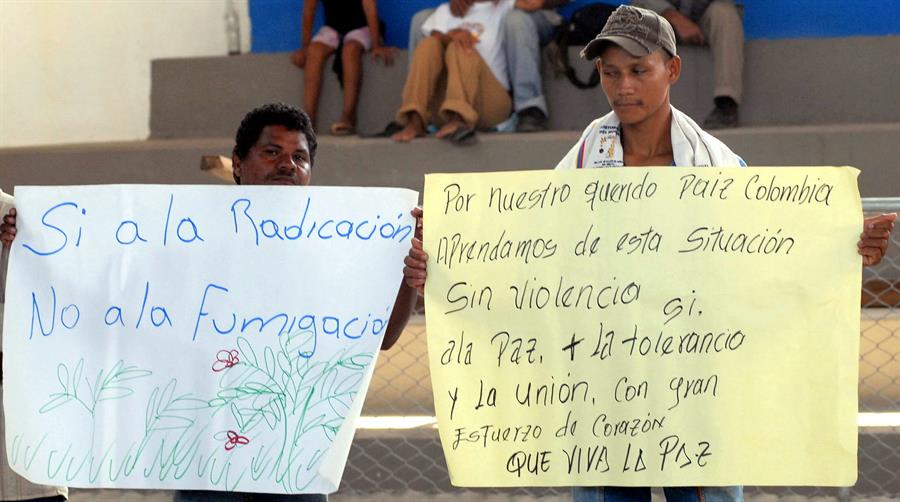 Si a la Radicación
No a la Fumigació
Por nuestro querido Paiz Colombia
Aprendamos de esta Situación
Sin violencia si.
ala Paz. + La tolerancia
y La unión. con gran
Esfuerzo de Corazón
QUE VIVA LA PAZ